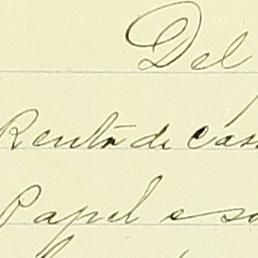 Del
Renta de cas
Papel e so